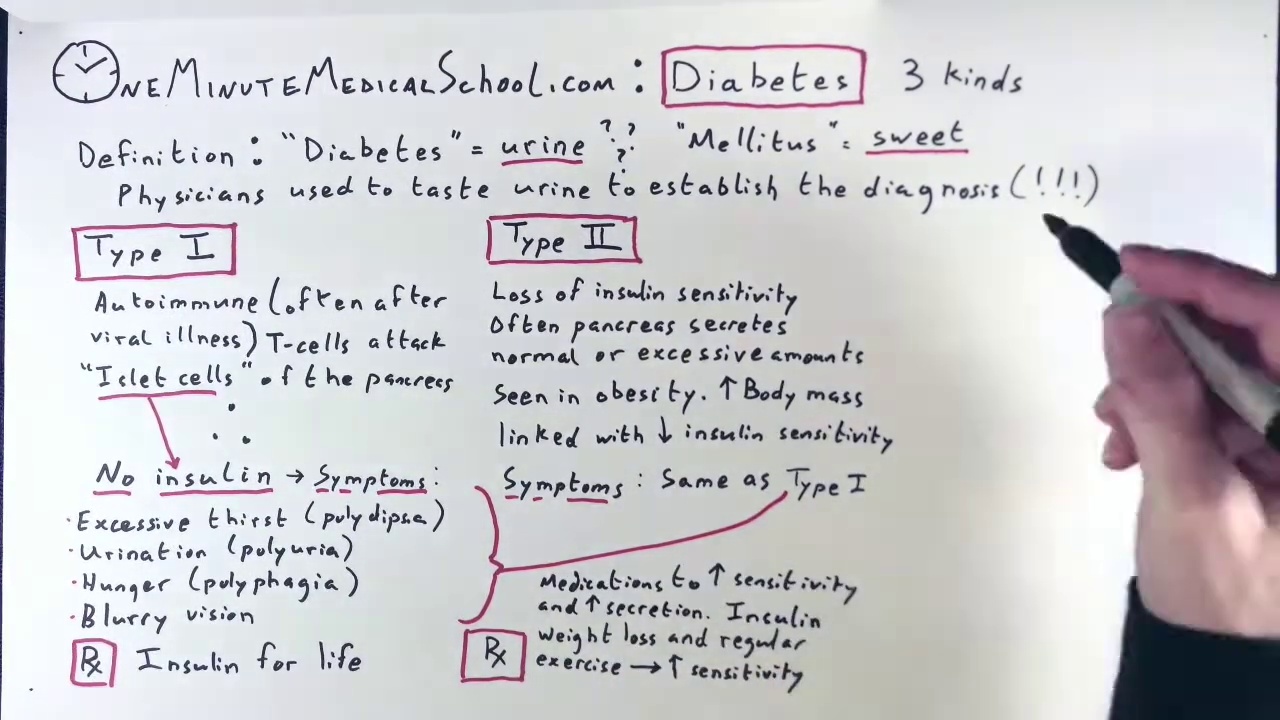 OneMinuteMedicalSchool.com : Diabetes 3 kinds
Definition : "Diabetes" = urine ??? "Mellitus" = sweet
Physicians used to taste urine to establish the diagnosis (!!!)
Type I
Autoimmune (often after
viral illness) T-cells attack
"Islet cells" of the pancreas
∴
No insulin → Symptoms :
· Excessive thirst (polydipsia)
· Urination (polyuria)
· Hunger (polyphagia)
· Blurry vision
Rx Insulin for life
Type II
Loss of insulin sensitivity
Often pancreas secretes
normal or excessive amounts
Seen in obesity. ↑ Body mass
linked with ↓ insulin sensitivity
Symptoms : Same as Type I
Rx
Medications to ↑ sensitivity
and ↑ secretion. Insulin
weight loss and regular
exercise → ↑ sensitivity